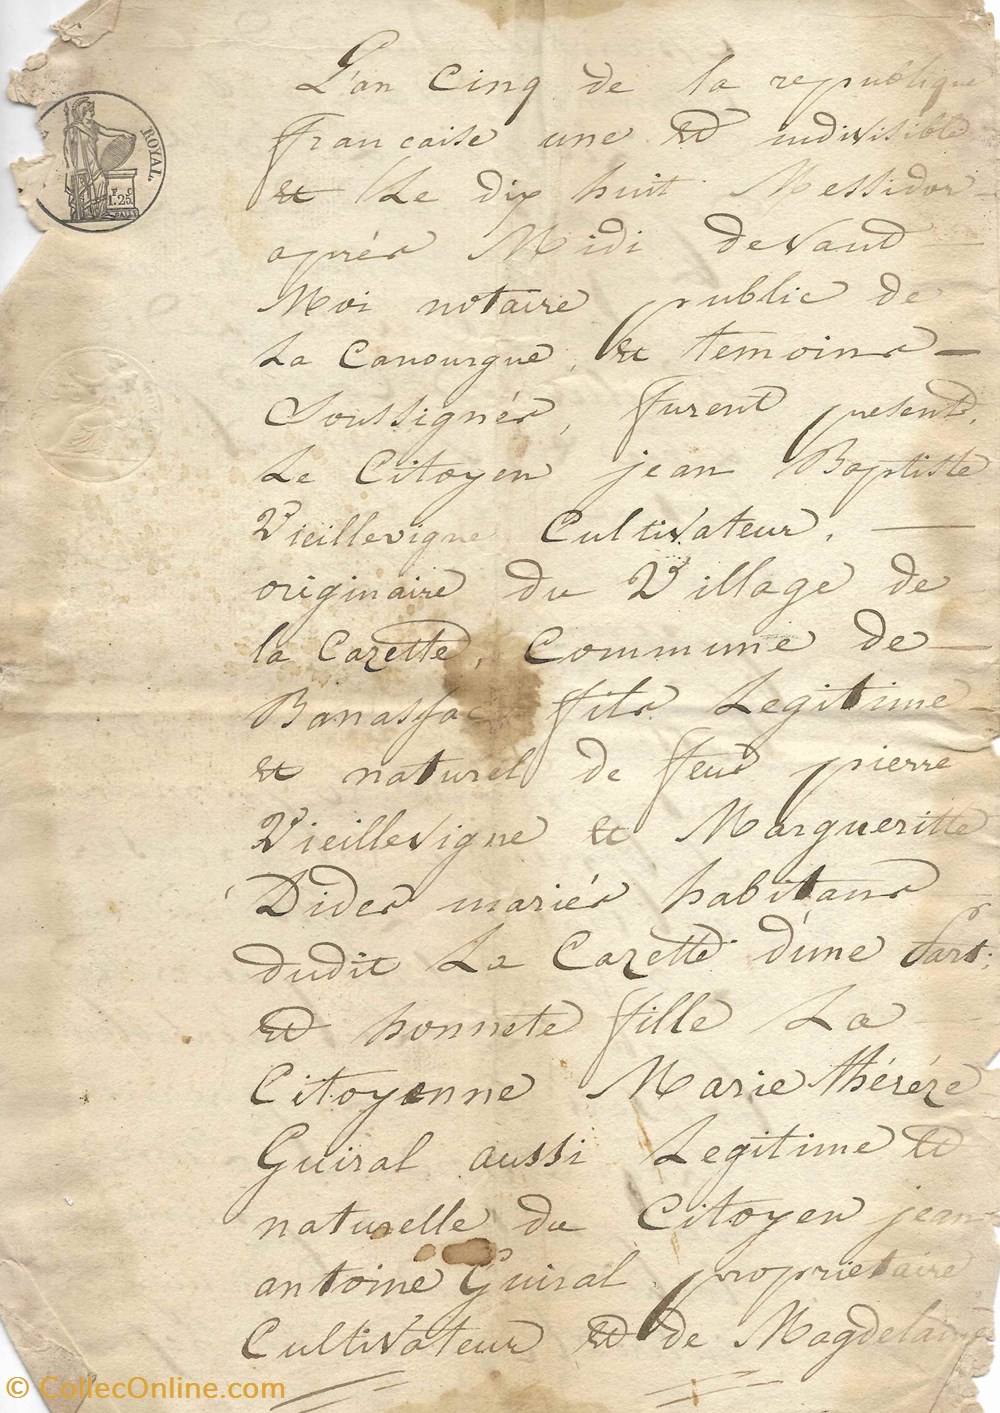 L'an Cinq de la republique
francaise une et indivisible
et Le dix huit Messidor
après Midi devant
Moi notaire public de
La Canourgue, et temoins
Soussignés, furent presents
Le Citoyen jean Baptiste
Vieillevigne Cultivateur,
originaire du Village de
la Cazette, Commune de
Banassac fils Legitime
et naturel de feu pierre
Vieillevigne et Margueritte
Dides mariés habitans
dudit La Cazette d'une Part;
et honnete fille La
Citoyenne Marie théréze
Guiral aussi Legitime et
naturelle du Citoyen jean
antoine Guiral proprietaire
Cultivateur et de Magdelaine
ROYAL.
F. C.
1.25
© CollecOnline.com